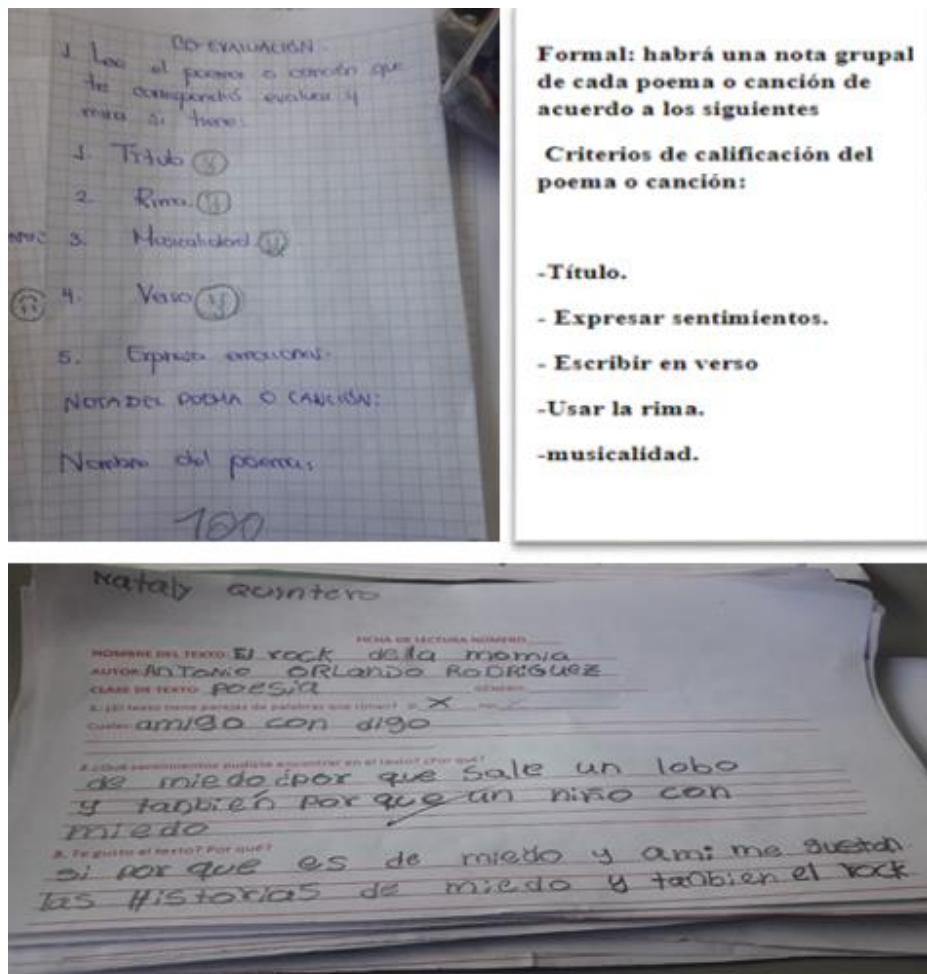 CO-EVALUACIÓN.
1. Lee el poema o canción que
te correspondió evaluar y
mira si tiene:
1. Título
2. Rima.
3. Musicalidad
4. Verso
5. Expresa emociones.
NOTA DEL POEMA O CANCIÓN:
Nombre del poema,
100
Formal: habrá una nota grupal
de cada poema o canción de
acuerdo a los siguientes
Criterios de calificación del
poema o canción:
-Título.
- Expresar sentimientos.
- Escribir en verso
-Usar la rima.
-musicalidad.
Nataly Quintero
FICHA DE LECTURA NÚMERO
NOMBRE DEL TEXTO: El rock de la momia
AUTOR: ANTONIO ORLANDO RODRIGUEZ
CLASE DE TEXTO: POESIA GÉNERO:
1. ¿El texto tiene parejas de palabras que rimen? si X no
Cuales: amigo con digo
2. ¿Qué sentimientos pudiste encontrar en el texto? ¿Por qué?
de miedo ¿por que sale un lobo
y tanbien por que un niño con
miedo
3. Te gusto el texto? Por qué?
si por que es de miedo y ami me gustan
las Historias de miedo y tanbien el rock